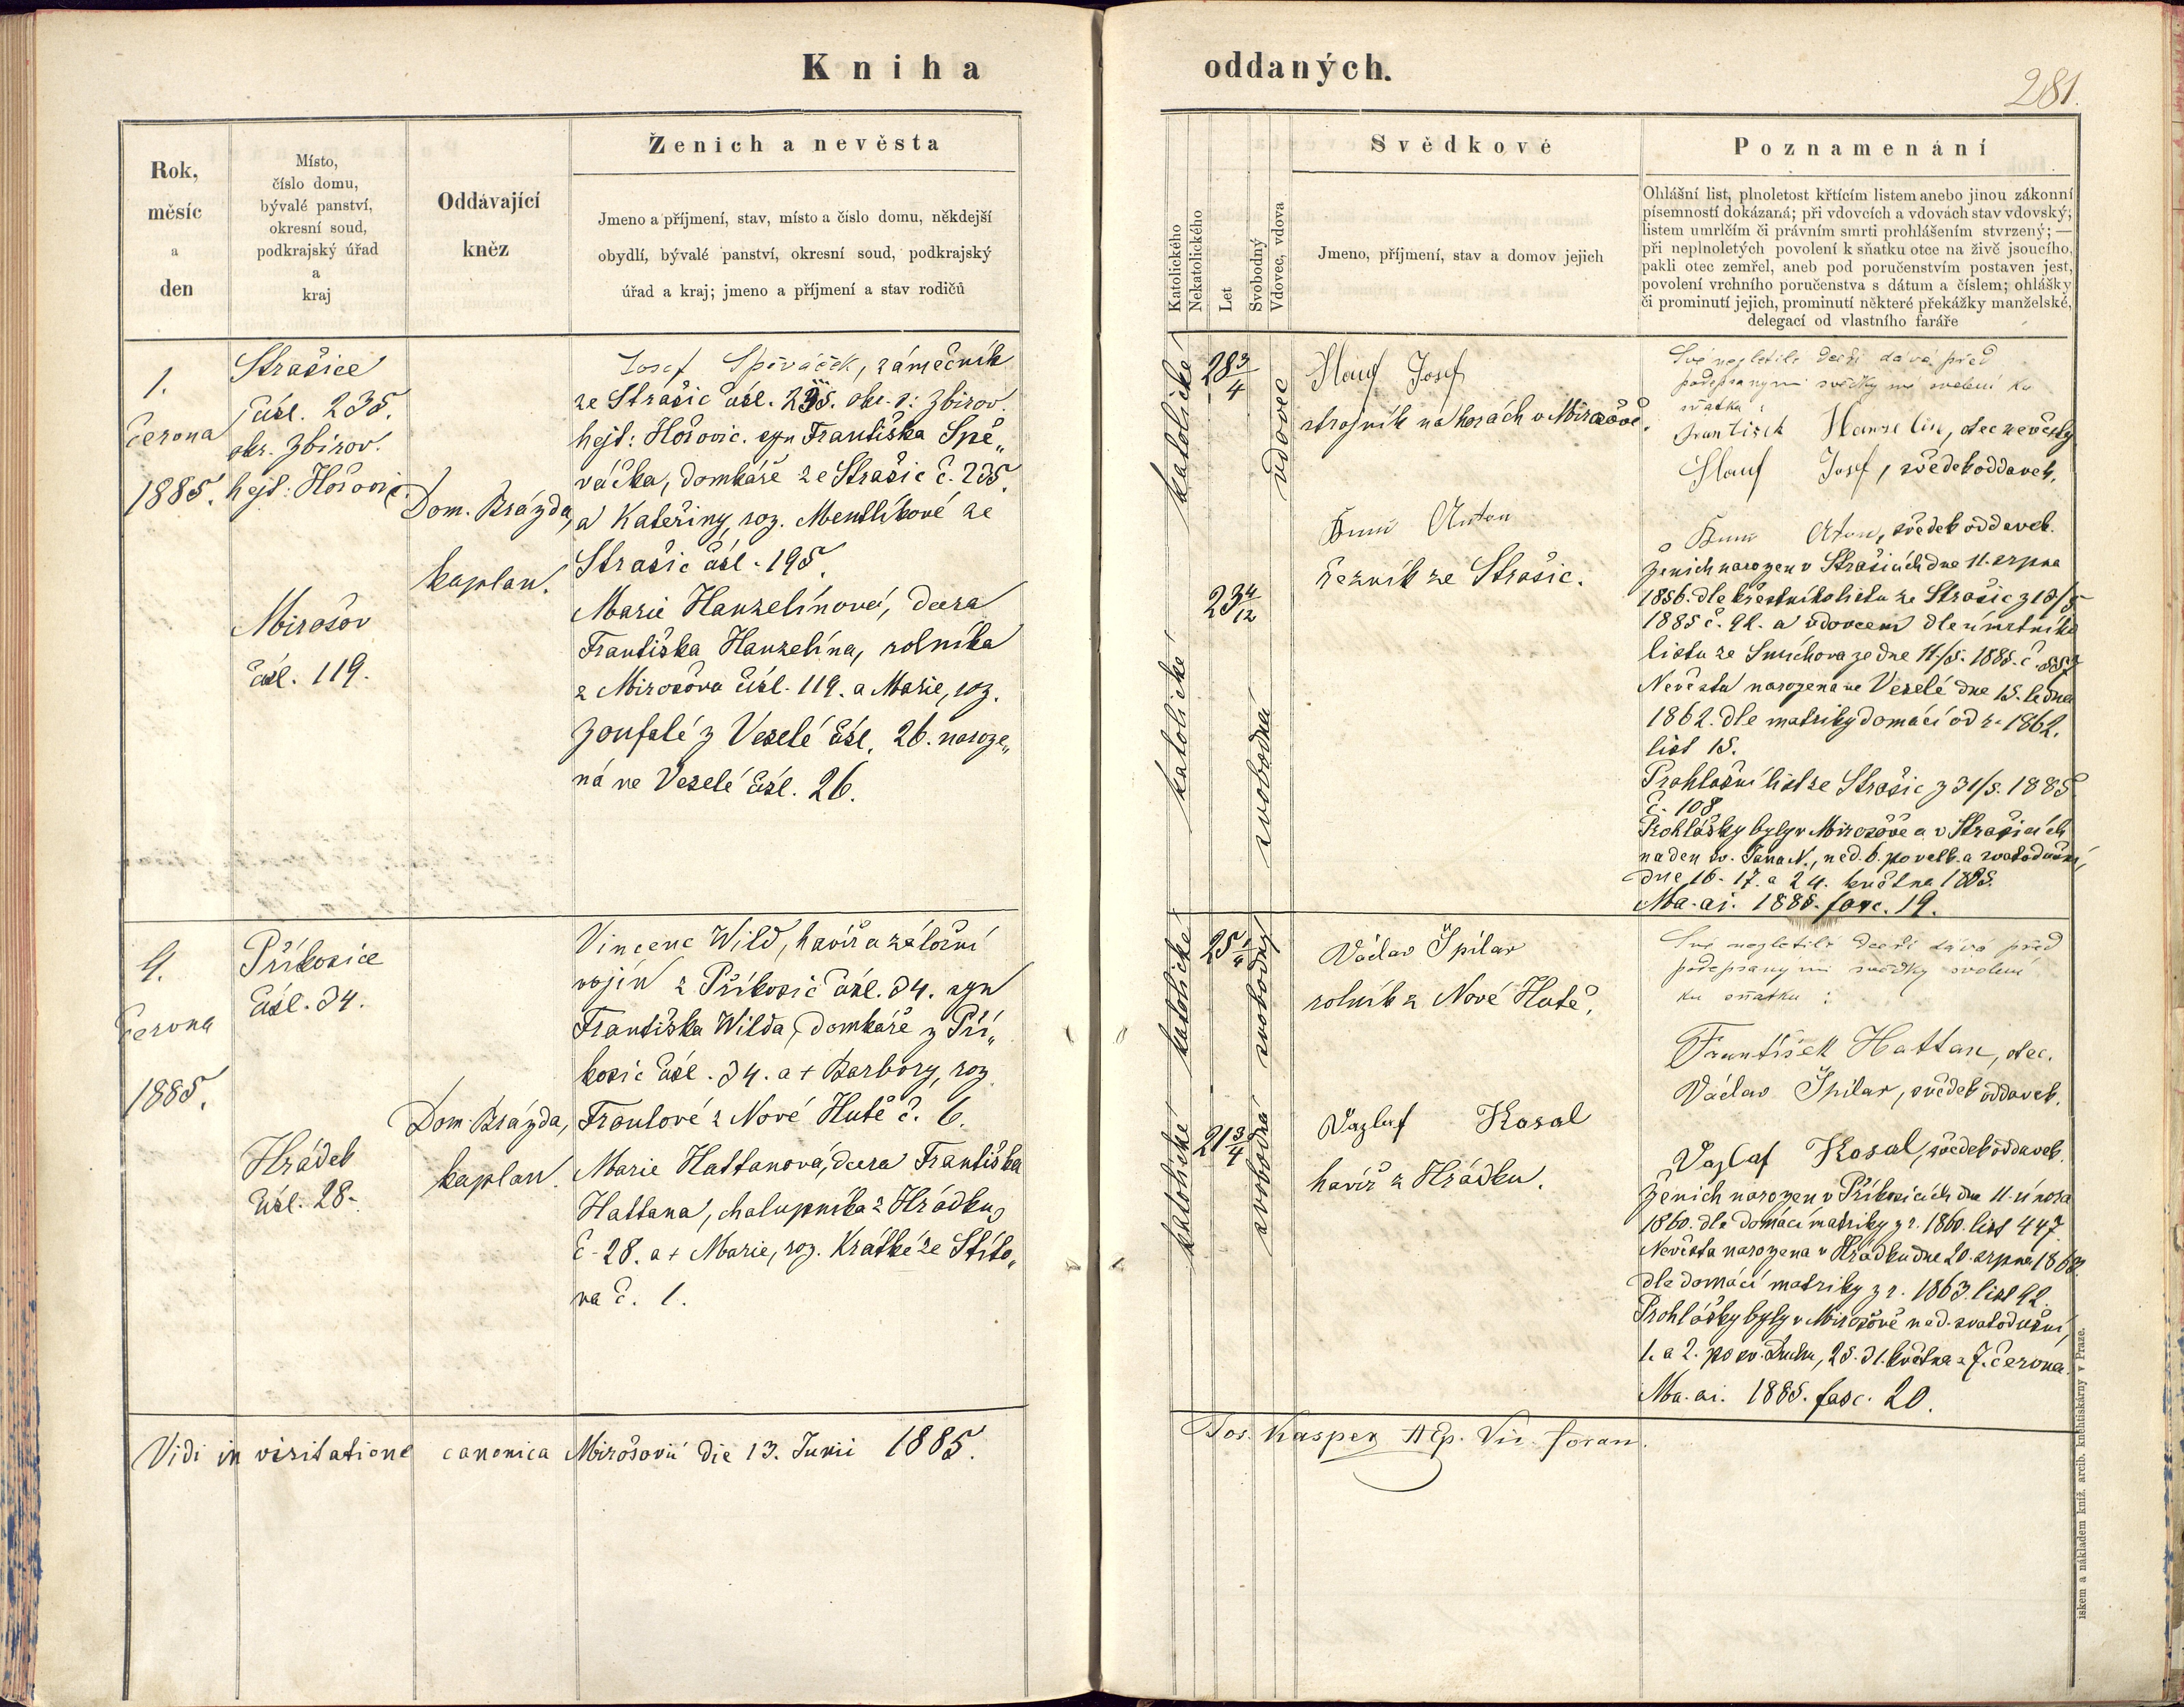 Kniha
oddaných.
281.
Rok,
měsíc
a
den
Místo,
číslo domu,
bývalé panství,
okresní soud,
podkrajský úřad
a
kraj
Oddávající
kněz
Ženich a nevěsta
Jmeno a příjmení, stav, místo a číslo domu, někdejší
obydlí, bývalé panství, okresní soud, podkrajský
úřad a kraj; jmeno a příjmení a stav rodičů
Katolického
Nekatolického
Let
Svobodný
Vdovec, vdova
Svědkové
Jmeno, příjmení, stav a domov jejich
Poznamenání
Ohlášní list, plnoletost křtícím listem anebo jinou zákonní
písemností dokázaná; při vdovcích a vdovách stav vdovský;
listem umrlčím či právním smrti prohlášením stvrzený; —
při neplnoletých povolení k sňatku otce na živě jsoucího,
pakli otec zemřel, aneb pod poručenstvím postaven jest,
povolení vrchního poručenstva s dátum a číslem; ohlášky
či prominutí jejich, prominutí některé překážky manželské,
delegací od vlastního faráře
1.
června
1885.
Strašice
čísl. 235.
okr. Zbirov.
hejt: Hořovic.
Mirošov
čísl. 119.
Dom. Brázda,
kaplan.
Josef Spěváček, zámečník
ze Strašic čísl. 235. okr. s: Zbirov.
hejt: Hořovic. syn Františka Spě„
váčka, domkáře ze Strašic č. 235.
a Kateřiny, roz. Mentlíkové ze
Strašic čísl. 195.
Marie Hanzelínová, dcera
Františka Hanzelína, rolníka
z Mirošova čísl. 119. a Marie, roz.
Zoufalé z Veselé čísl. 26. naroze„
ná ve Veselé čísl. 26.
katolické
28 3/4
vdovec
katolické
23 4/12
svobodná
Hauf Josef
strojník na horách v Mirošově.
Anton
řezník ze Strašic.
Své nezletilé dceři dává před
podepsanými svědky své svolení ku
sňatku:
František Hanzelin, otec nevěsty
Hauf Josef, svědek oddavek.
Aton, svědek oddavek.
Ženich narozen v Strašicích dne 11. srpna
1856. dle křestního listu ze Strašic z 18/5
1885 č. 92. a vdovcem dle úmrtního
listu ze Smíchova ze dne 11./5. 1885. č. 557
Nevěsta narozena ve Veselé dne 15. ledna
1862. dle matriky domácí od r. 1862.
list 15.
Prohlašní list ze Strašic z 31/5. 1885
č. 108
Prohlášky byly v Mirošově a v Strašicích
na den sv. Jana N., ned. 6. po velk. a svatodušní,
dne 16. 17. a 24. května 1885.
Ma. ai. 1885. fasc. 19.
9.
června
1885.
Příkosice
čísl. 34.
Hrádek
čísl. 28.
Dom. Brázda,
kaplan.
Vincenc Wild, havíř a záložní
vojín z Příkosic čísl. 34. syn
Františka Wilda, domkáře z Pří„
kosic čísl. 34. a + Barbory, roz.
Fraulové z Nové Hutě č. 6.
Marie Hattanová, dcera Františka
Hattana, chalupníka z Hrádku,
č. 28. a + Marie, roz. Krátké ze Štíto„
va č. 1.
katolické
25 1/4
svobodný
katolické
21 3/4
svobodná
Václav Špilar
rolník z Nové Hutě.
Vazlaf Kosal
havíř z Hrádku.
Své nezletilé dceři dává před
podepsanými svědky svolení
ku sňatku:
František Hattan, otec.
Václav Špilar, svědek oddavek.
Vazlaf Kosal, svědek oddavek.
Ženich narozen v Příkosicích dne 11. února
1860. dle domácí matriky z r. 1860. list 447.
Nevěsta narozena v Hrádku dne 20. srpna 1863.
dle domácí matriky z r. 1863. list 92.
Prohlášky byly v Mirošově ned. svatodušní,
1. a 2. po sv. Duchu, 25. 31. května a 7. června.
Ma. ai. 1885. fasc. 20.
Vidi in visitatione canonica Mirošovii die 13. Junii 1885.
Jos. Kasper AEp. Vic. foran.
iskem a nákladem kníž. arcib. knihtiskárny v Praze.